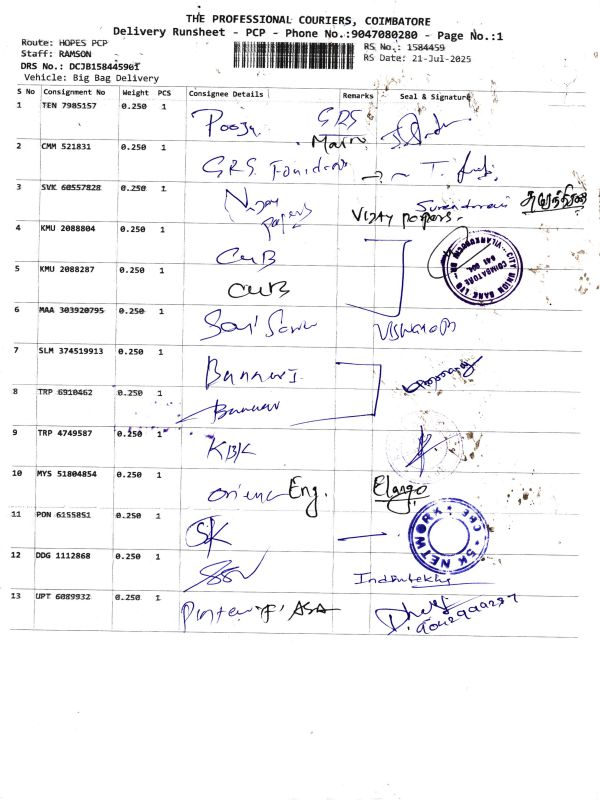 THE PROFESSIONAL COURIERS, COIMBATORE
Delivery Runsheet - PCP - Phone No.:9047080280 - Page No.:1
Route: HOPES PCP
RS No.: 1584459
Staff: RAMSON
RS Date: 21-Jul-2025
DRS No.: DCJB1584459GI
Vehicle: Big Bag Delivery
S No Consignment No Weight PCS Consignee Details Remarks Seal & Signature
1 TEN 7985157 0.250 1 Pooja GRS Main
2 CMM 521831 0.250 1 GRS
3 SVK 60557828 0.250 1 Vijay papers VIJAY papers.
4 KMU 2088804 0.250 1 CUB
CITY UNION BANK LTD COIMBATORE
5 KMU 2088287 0.250 1 CUB
6 MAA 303920795 0.250 1
7 SLM 374519913 0.250 1 Bannari
8 TRP 6910462 0.250 1 Bannari
9 TRP 4749587 0.250 1 KBK
10 MYS 51804854 0.250 1 Orienc Eng. Elango
11 PON 6155851 0.250 1 SK
SK NETWORK CBE
12 DDG 1112868 0.250 1 SSV
13 UPT 6089932 0.250 1 ASA